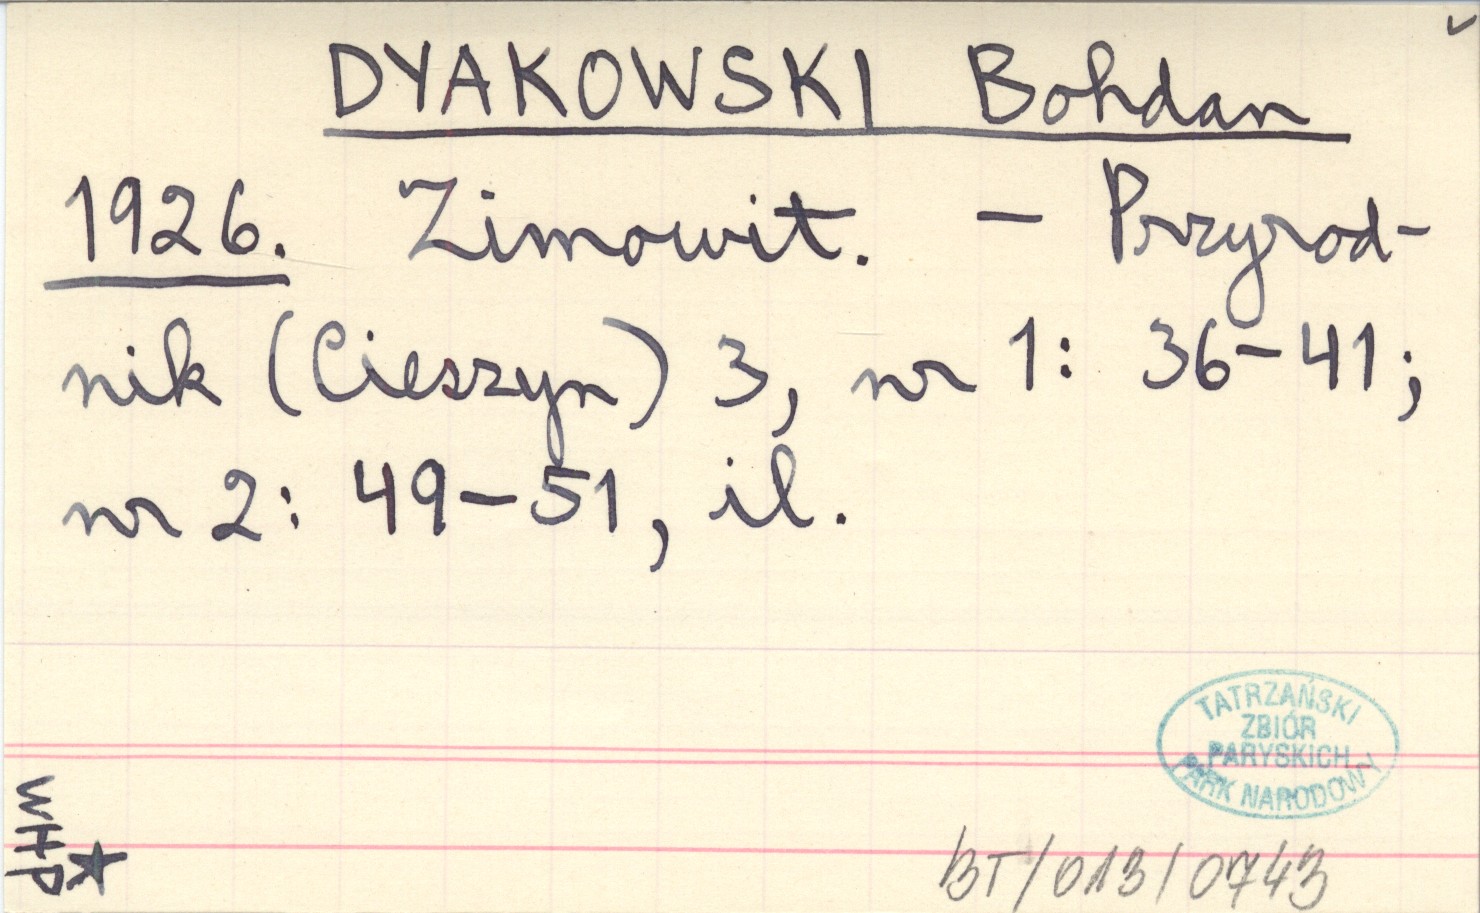 DYAKOWSKI Bohdan
1926. Zimowit. – Przyrod-
nik (Cieszyn) 3, nr 1: 36–41;
nr 2: 49–51, il.
TATRZAŃSKI
ZBIÓR
PARYSKICH
PARK NARODOWY
WHP
BT/013/0743